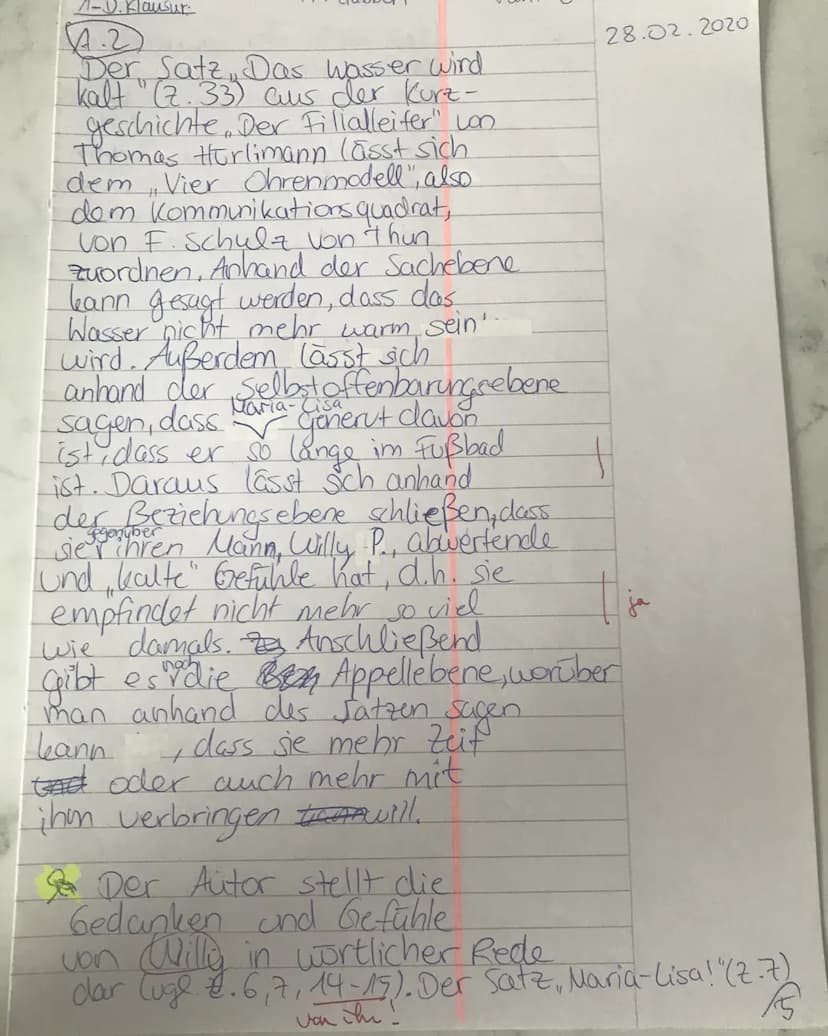 1-D. Klausur
28.02.2020
A.2
Der Satz „Das Wasser wird
kalt" (Z. 33) aus der Kurz-
geschichte „Der Filialleifer" von
Thomas Hürlimann lässt sich
dem „Vier Ohrenmodell", also
dem Kommunikationsquadrat,
von F. Schulz von Thun
zuordnen. Anhand der Sachebene
kann gesagt werden, dass das
Wasser nicht mehr warm sein
wird. Außerdem lässt sich
anhand der Selbstoffenbarungsebene
sagen, dass Maria-Lisa genervt davon
ist, dass er so lange im Fußbad
ist. Daraus lässt sich anhand
der Beziehungsebene schließen, dass
sie gegenüber ihren Mann, Willy P., abwertende
und „kalte" Gefühle hat, d.h. sie
empfindet nicht mehr so viel
ja
wie damals. Anschließend
gibt es noch die Appellebene, worüber
man anhand des Satzen sagen
kann , dass sie mehr Zeit
oder auch mehr mit
ihm verbringen will.
Der Autor stellt die
Gedanken und Gefühle
von Willy in wörtlicher Rede
dar (vgl. Z. 6, 7, 14-15). Der Satz „Maria-Lisa!" (Z. 7)
von ihr!
/5